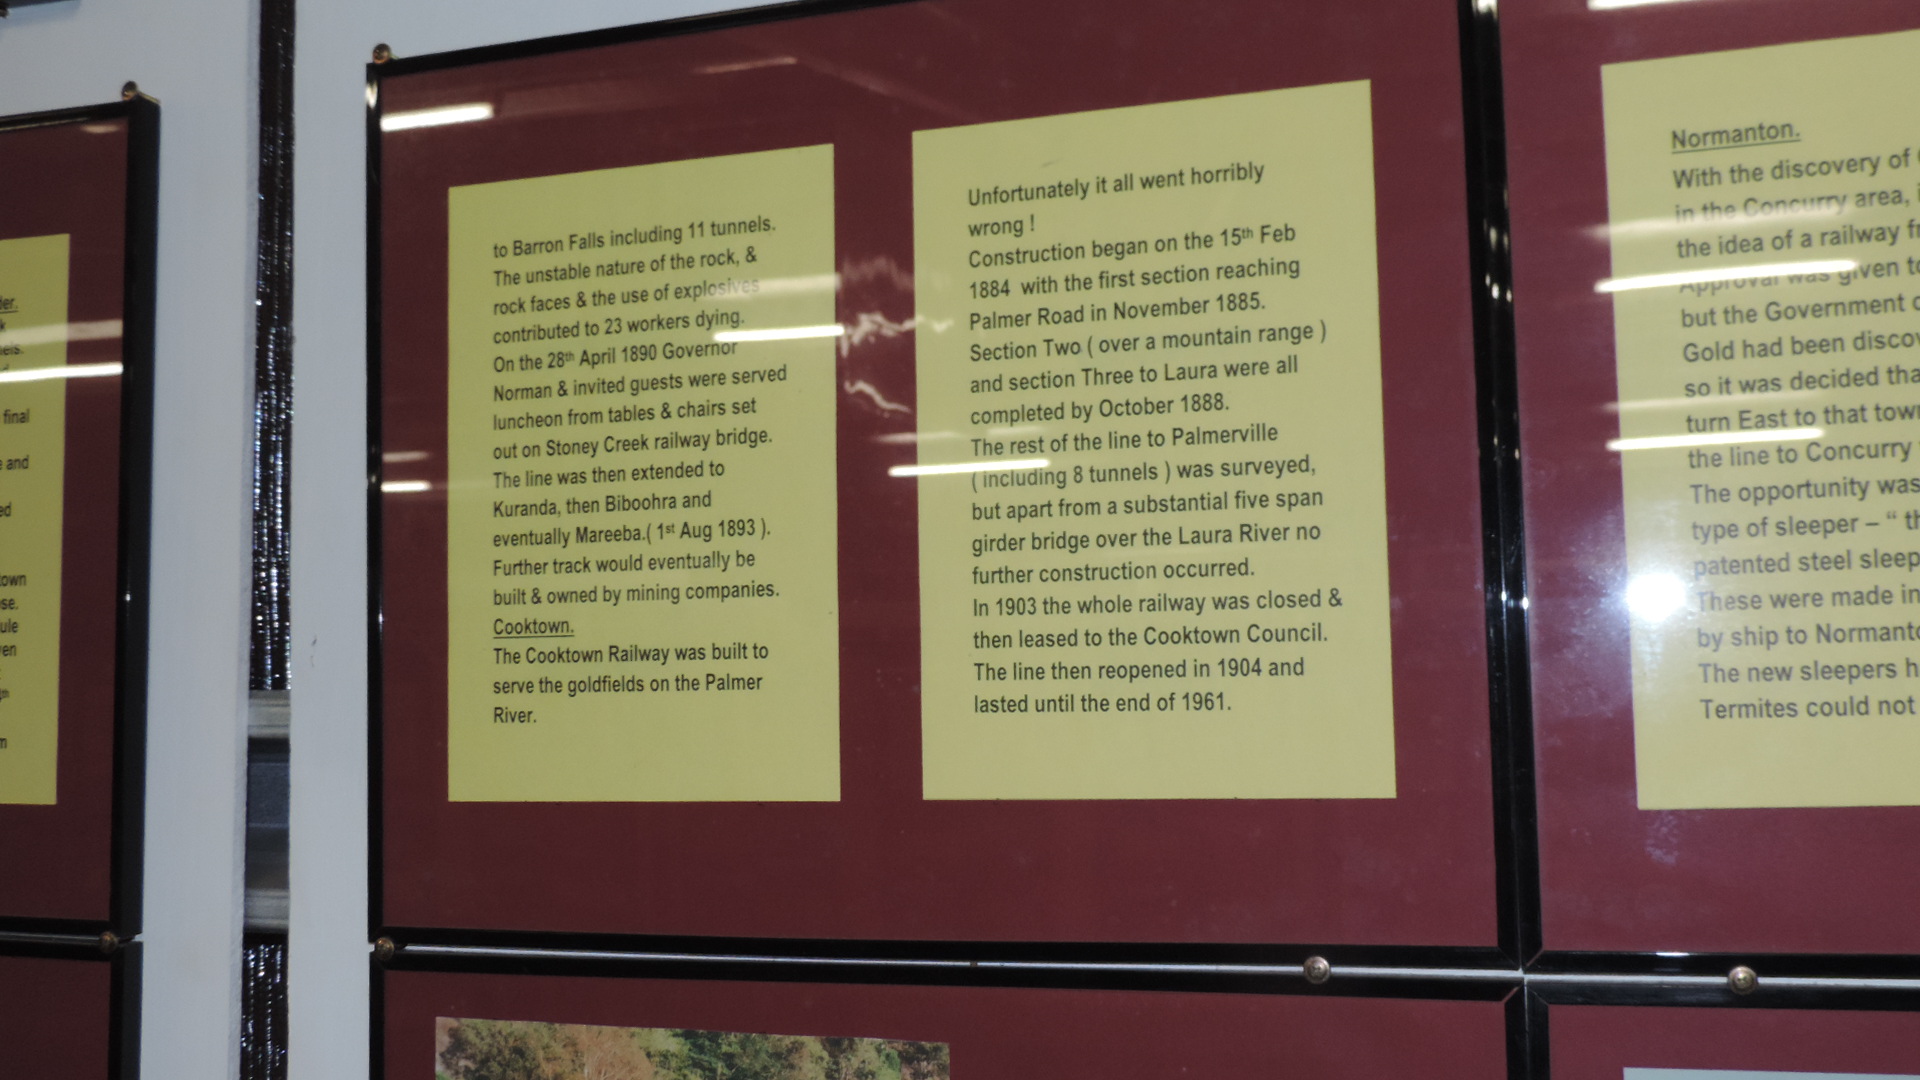 final
and
to Barron Falls including 11 tunnels.
The unstable nature of the rock, &
rock faces & the use of explosives
contributed to 23 workers dying.
On the 28th April 1890 Governor
Norman & invited guests were served
luncheon from tables & chairs set
out on Stoney Creek railway bridge.
The line was then extended to
Kuranda, then Biboohra and
eventually Mareeba.( 1st Aug 1893 ).
Further track would eventually be
built & owned by mining companies.
Cooktown.
The Cooktown Railway was built to
serve the goldfields on the Palmer
River.
Unfortunately it all went horribly
wrong !
Construction began on the 15th Feb
1884 with the first section reaching
Palmer Road in November 1885.
Section Two ( over a mountain range )
and section Three to Laura were all
completed by October 1888.
The rest of the line to Palmerville
( including 8 tunnels ) was surveyed,
but apart from a substantial five span
girder bridge over the Laura River no
further construction occurred.
In 1903 the whole railway was closed &
then leased to the Cooktown Council.
The line then reopened in 1904 and
lasted until the end of 1961.
Normanton.
With the discovery of
in the Concurry area,
the idea of a railway
Approval was given
but the Government
Gold had been
so it was decided
turn East to that
the line to Concurry
The opportunity was
type of sleeper – “
patented steel
These were made in
by ship to
The new sleepers
Termites could not